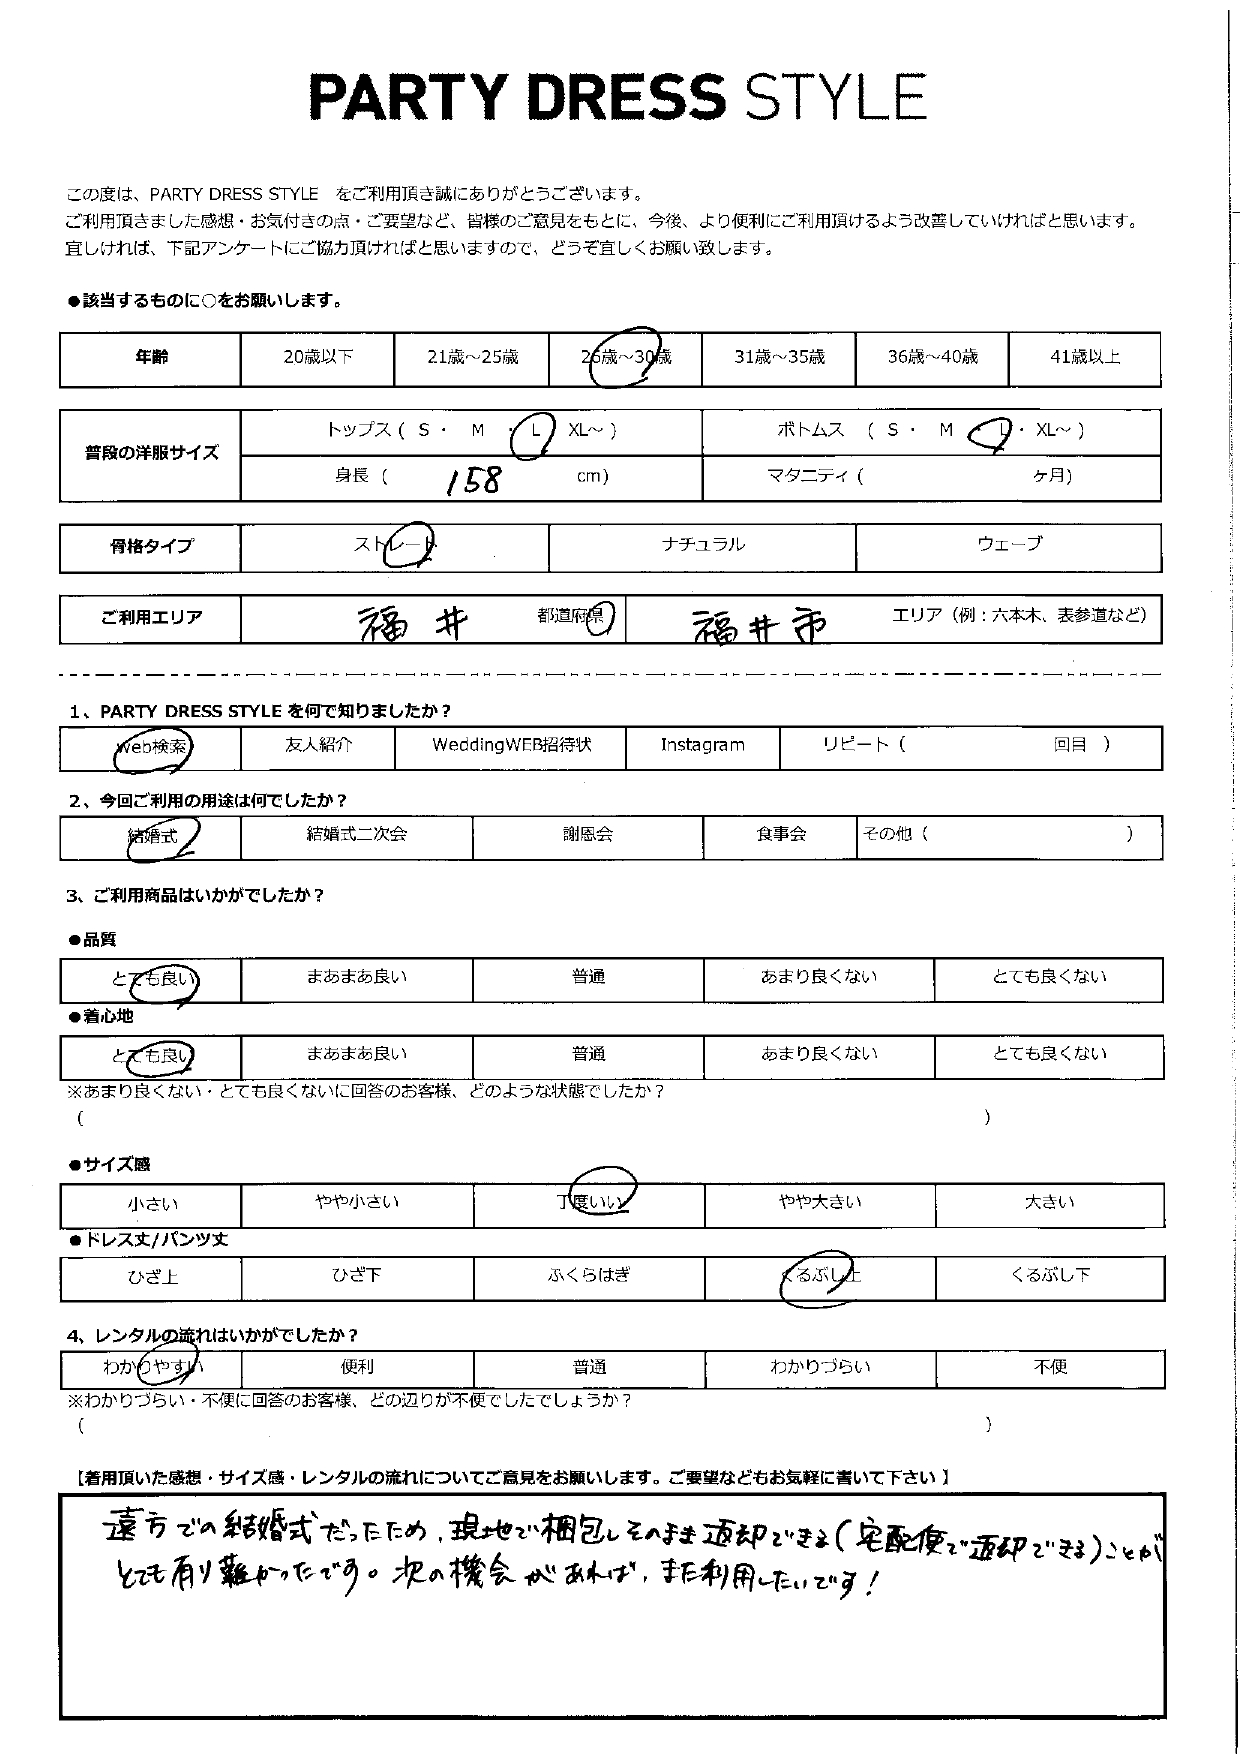 PARTY DRESS STYLE
この度は、PARTY DRESS STYLE　をご利用頂き誠にありがとうございます。
ご利用頂きました感想・お気付きの点・ご要望など、皆様のご意見をもとに、今後、より便利にご利用頂けるよう改善していければと思います。
宜しければ、下記アンケートにご協力頂ければと思いますので、どうぞ宜しくお願い致します。
●該当するものに○をお願いします。
年齢 20歳以下 21歳～25歳 26歳～30歳 31歳～35歳 36歳～40歳 41歳以上
普段の洋服サイズ トップス ( S ・ M ・ L XL～ ) ボトムス ( S ・ M L ・ XL～ )
身長 ( 158 cm) マタニティ ( ヶ月)
骨格タイプ ストレート ナチュラル ウェーブ
ご利用エリア 福井 都道府県 福井市 エリア（例：六本木、表参道など）
1、PARTY DRESS STYLE を何で知りましたか？
Web検索 友人紹介 WeddingWEB招待状 Instagram リピート ( 回目 )
2、今回ご利用の用途は何でしたか？
結婚式 結婚式二次会 謝恩会 食事会 その他 ( )
3、ご利用商品はいかがでしたか？
●品質
とても良い まあまあ良い 普通 あまり良くない とても良くない
●着心地
とても良い まあまあ良い 普通 あまり良くない とても良くない
※あまり良くない・とても良くないに回答のお客様、どのような状態でしたか？
( )
●サイズ感
小さい やや小さい 丁度いい やや大きい 大きい
●ドレス丈/パンツ丈
ひざ上 ひざ下 ふくらはぎ くるぶし上 くるぶし下
4、レンタルの流れはいかがでしたか？
わかりやすい 便利 普通 わかりづらい 不便
※わかりづらい・不便に回答のお客様、どの辺りが不便でしたでしょうか？
( )
【着用頂いた感想・サイズ感・レンタルの流れについてご意見をお願いします。ご要望などもお気軽に書いて下さい 】
遠方での結婚式だったため、現地で梱包しそのまま返却できる(宅配便で返却できる)ことが
とても有り難かったです。次の機会があれば、また利用したいです！